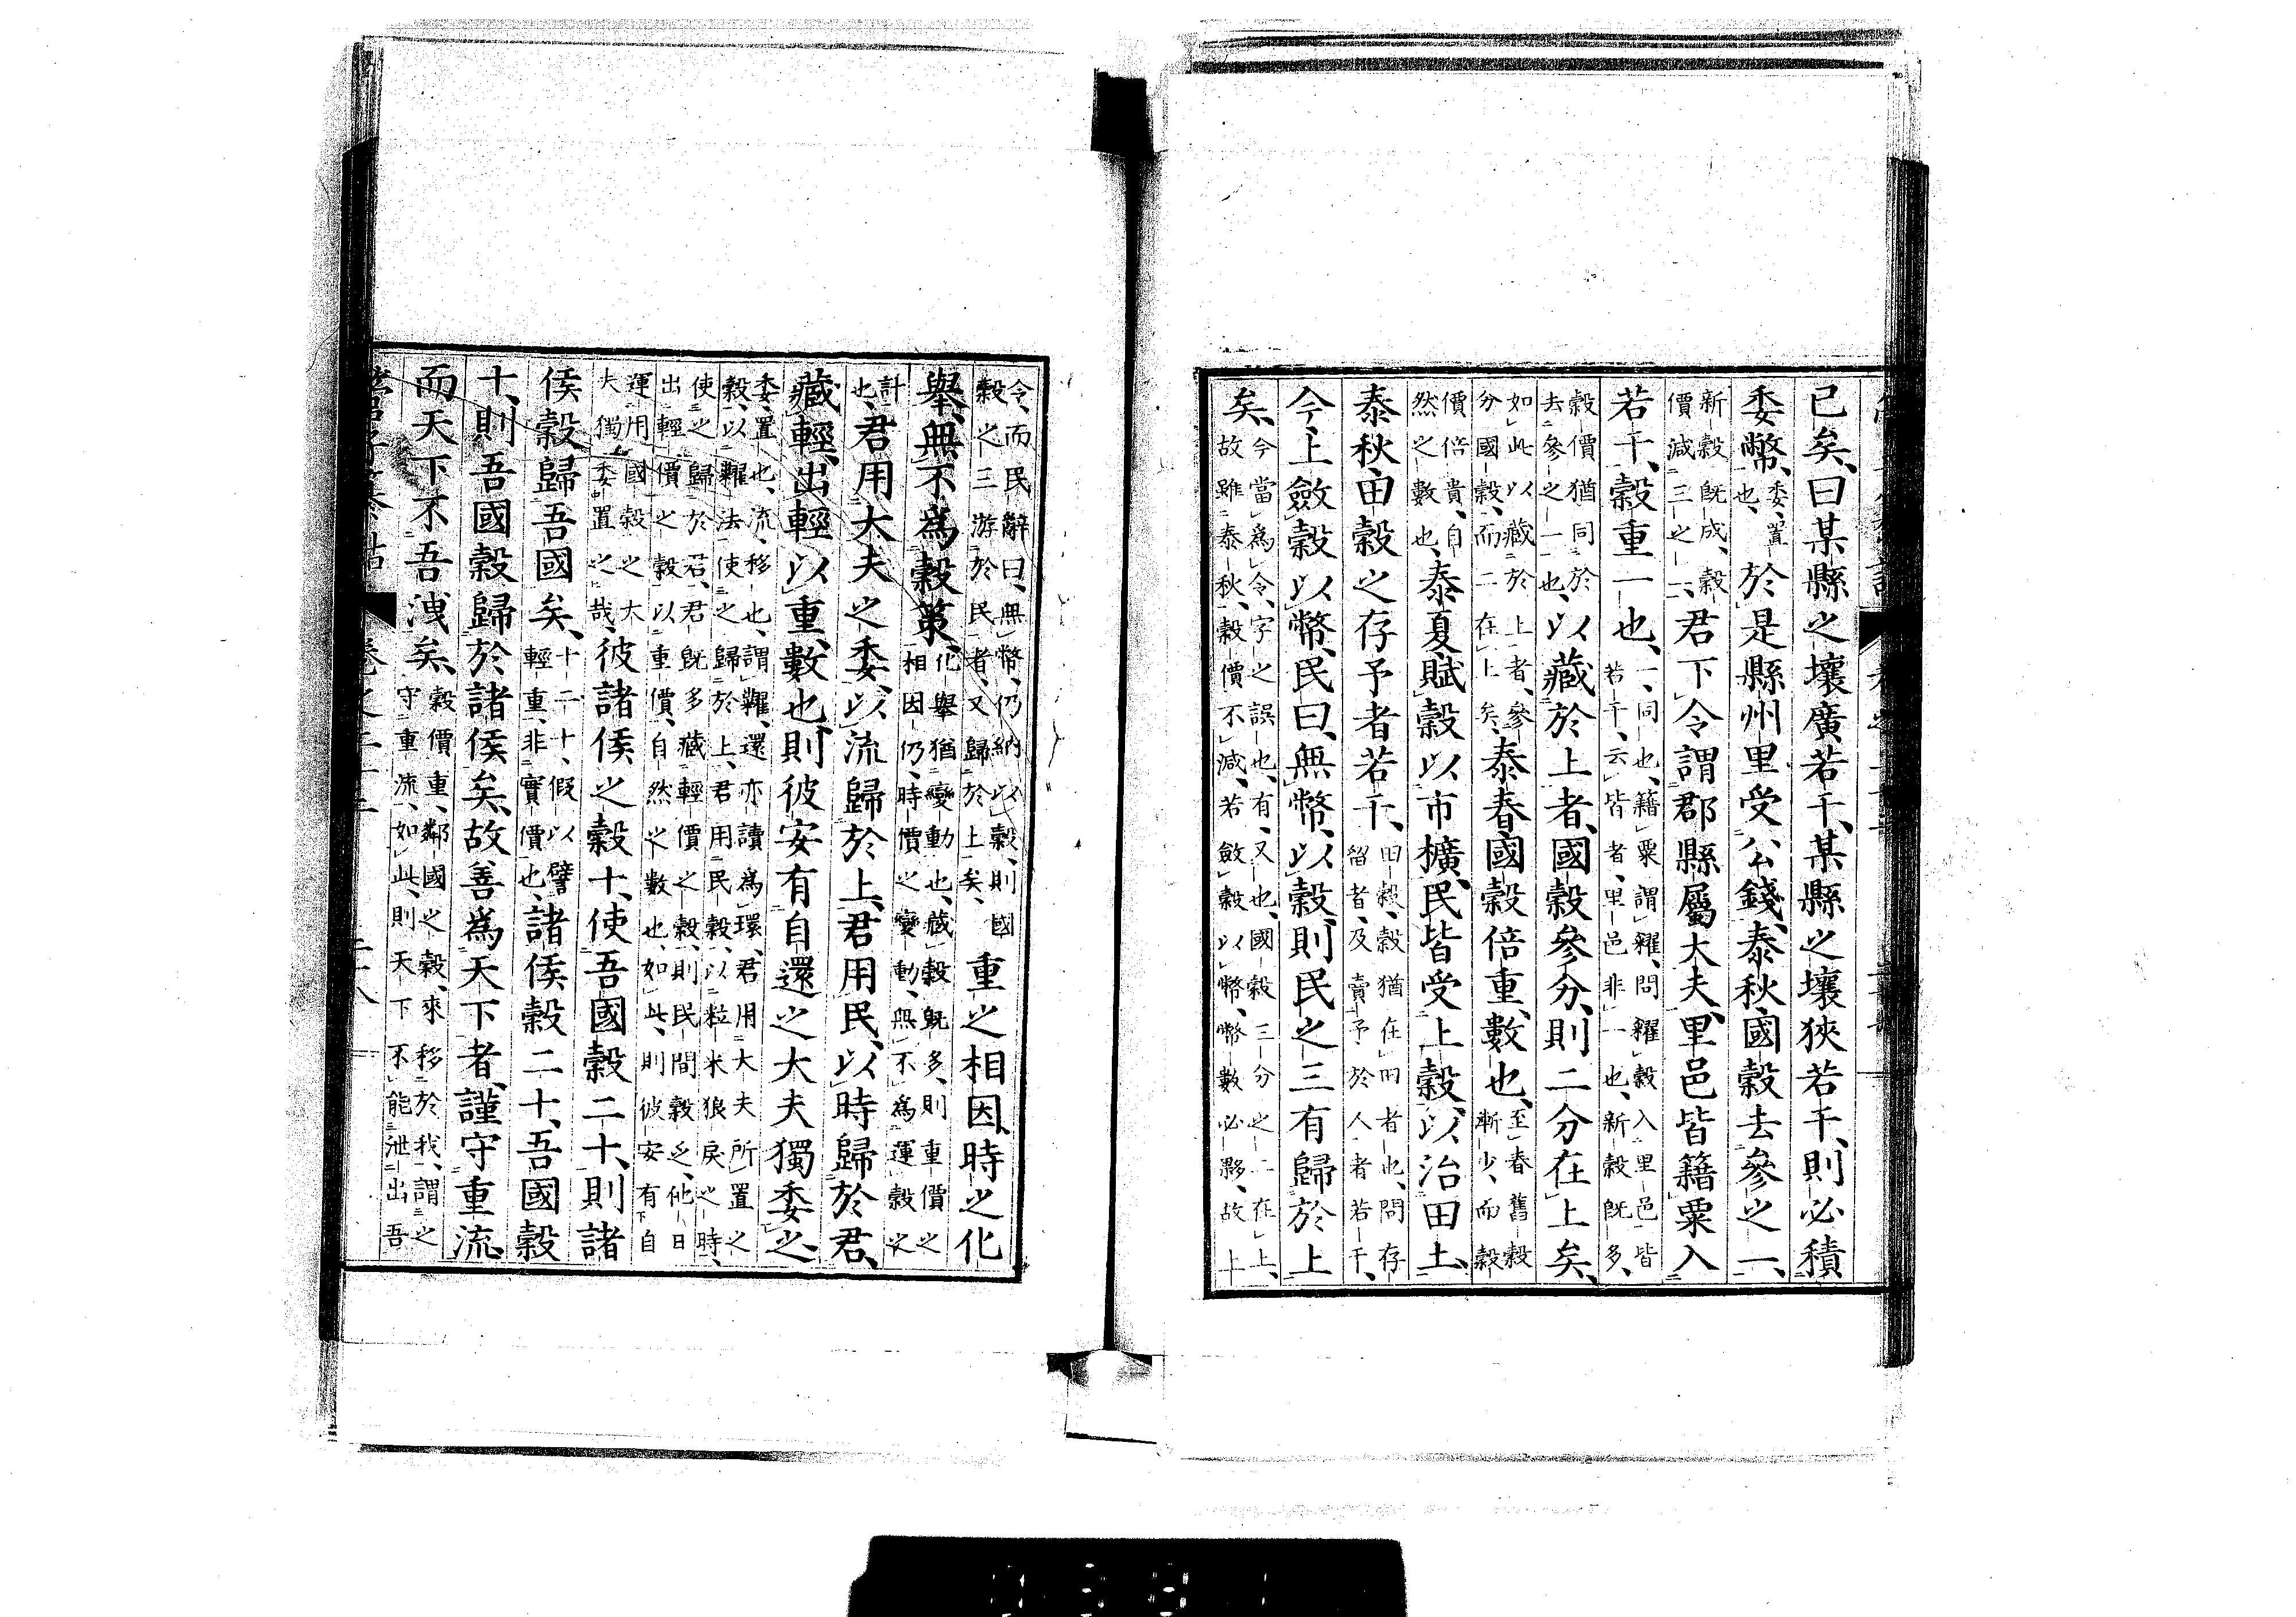 已矣、曰某縣之壤廣若干、某縣之壤狹若干、則必積
委幣、委、置也、於是縣州里受公錢、泰秋、國穀去參之一、
新穀既成、穀價減三之一、君下令謂郡縣屬大夫、里邑皆籍粟入
若干、穀重一也、一、同也、籍粟謂糴、問糴穀入里邑皆若干、云皆者、里邑非一也、新穀既多、
穀價猶同於去參之一也、以藏於上者、國穀參分、則二分在上矣、
如此以藏於上者、參分國穀、而二在上矣、泰春、國穀倍重、數也、至春舊穀漸少、而穀
價倍貴、自然之數也、泰夏、賦穀以市櫎、民皆受上穀、以治田土、
泰秋、田穀之存予者若干、田穀、穀猶在田者也、問存留者、及賣予於人者若干、
今上斂穀以幣、民曰、無幣、以穀、則民之三有歸於上
矣、今當為令、字之誤也、有、又也、國穀三分之二在上、故雖泰秋、穀價不減、若斂穀以幣、幣數必夥、故上
令、而民辭曰、無幣、仍納以穀、則國穀之三游於民者、又歸於上矣、重之相因、時之化
舉、無不為穀策、化舉猶變動也、藏穀既多、則重價之相因仍、時價之變動、無不為運穀之
計也、君用大夫之委、以流歸於上、君用民、以時歸於君、
藏輕、出輕以重、數也、則彼安有自還之大夫獨委之、
委、置也、流、移也、謂糶、還亦讀為環、君用大夫所置之穀、以糶法使之歸於上、君用民穀、以粒米狼戾之時、
使之歸於君、君既多藏輕價之穀、則民間穀乏、他日出輕價之穀以重價、自然之數也、如此、則彼安有下自
運用國穀之大夫獨委置之哉、彼諸侯之穀十、使吾國穀二十、則諸
侯穀歸吾國矣、十二十、假以譬輕重、非實價也、諸侯穀二十、吾國穀
十、則吾國穀歸於諸侯矣、故善為天下者、謹守重流、
而天下不吾洩矣、穀價重、鄰國之穀、來移於我、謂之守重流、如此、則天下不能泄出吾